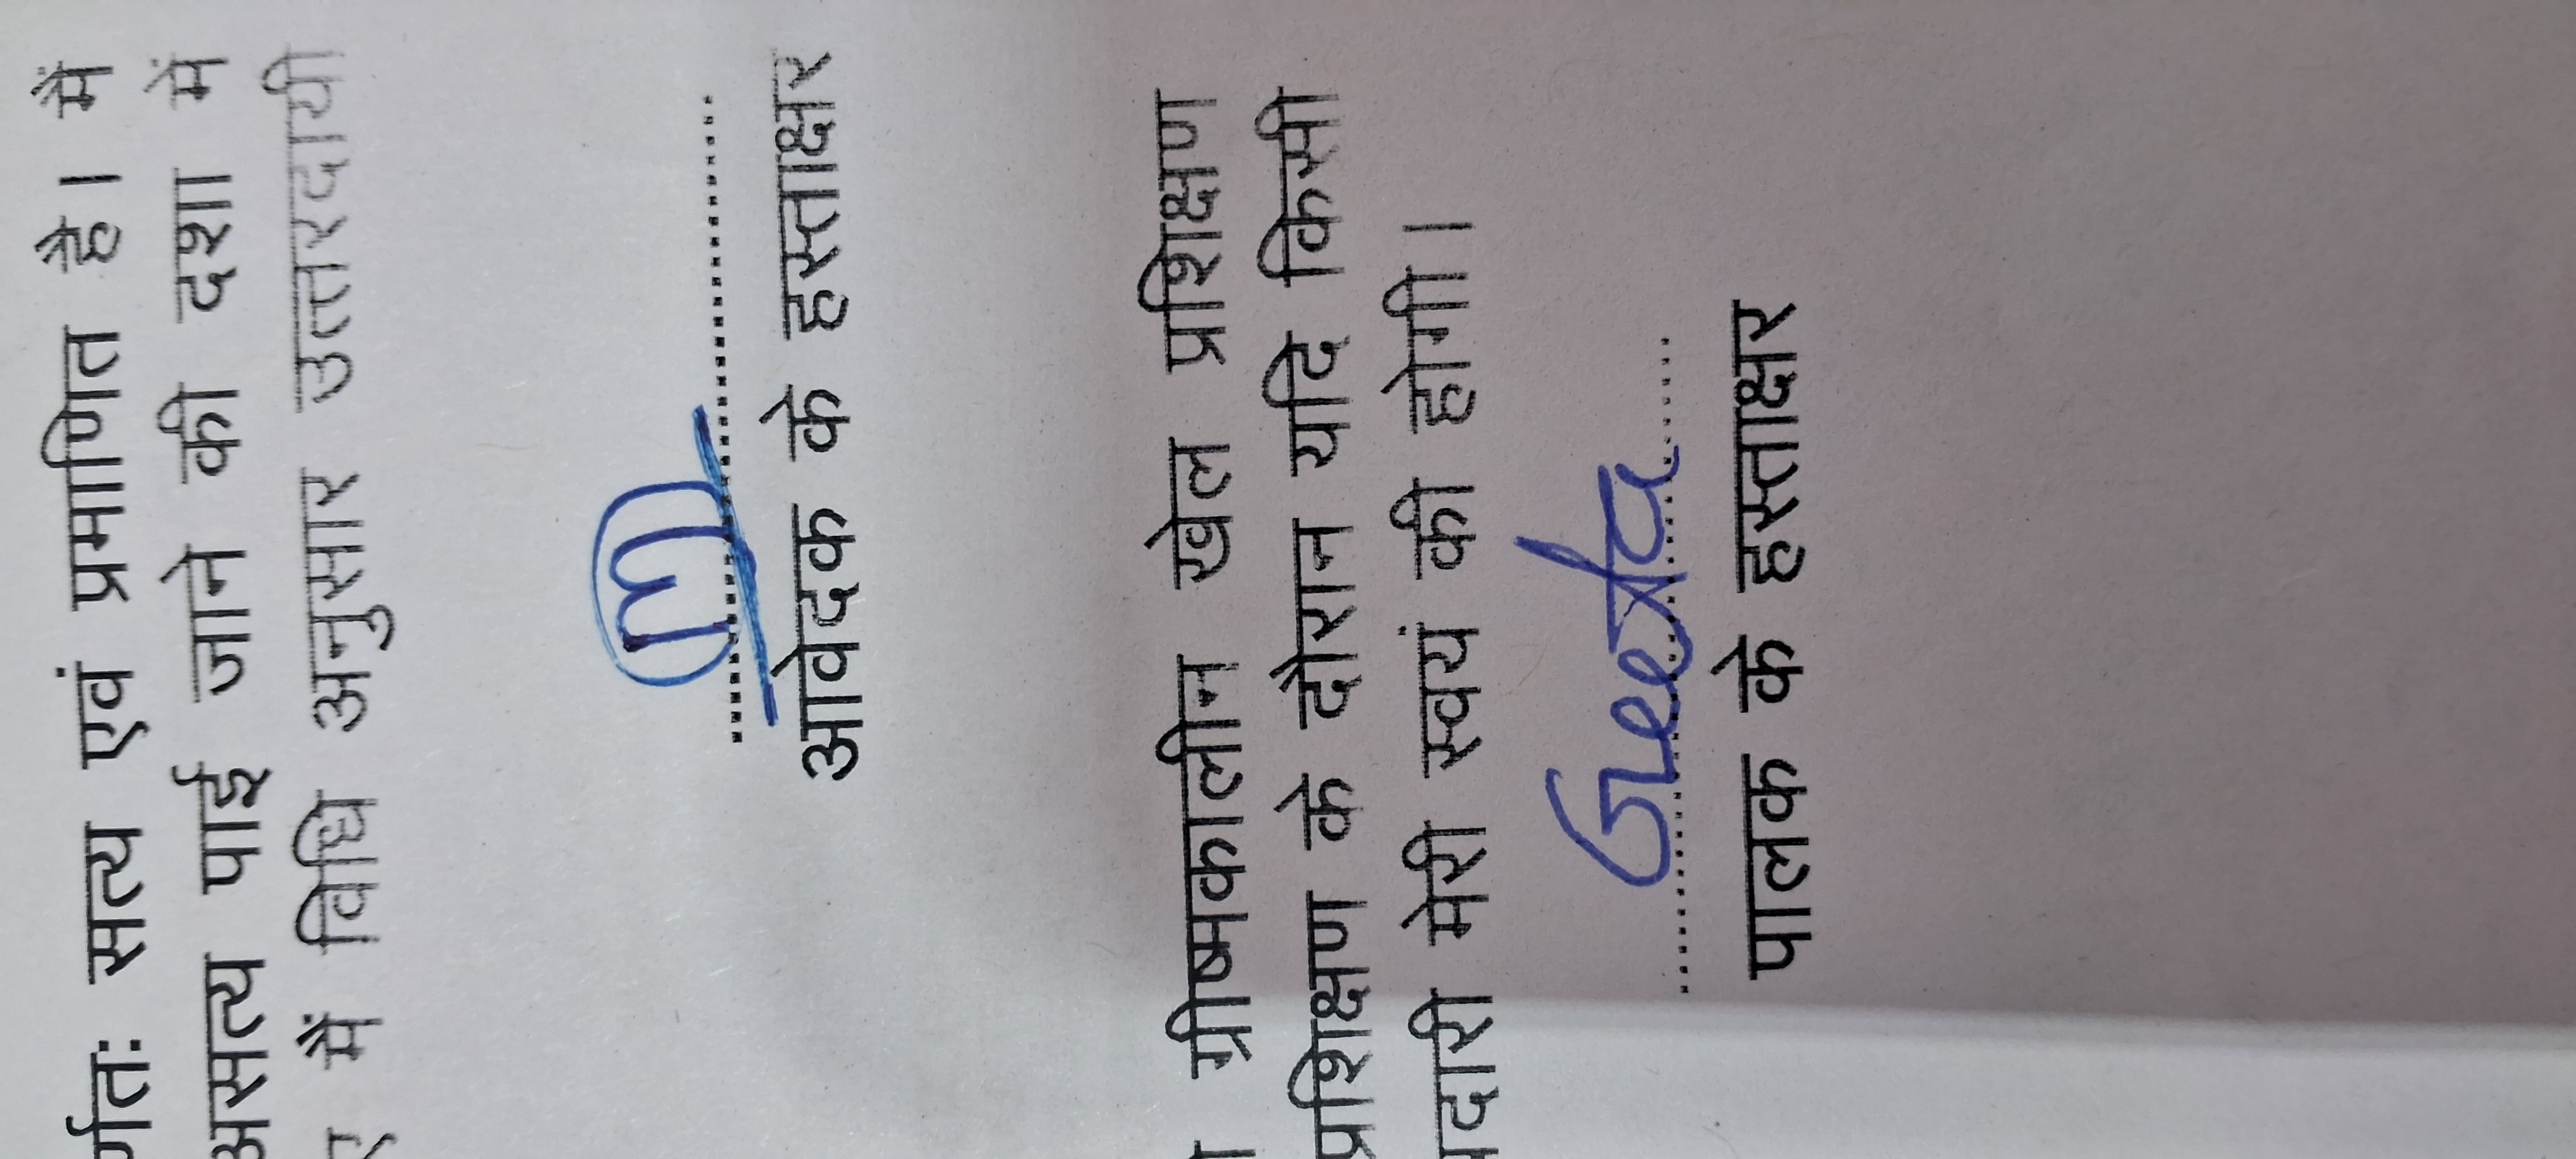 र्णतः सत्य एवं प्रमाणित है। मैं
असत्य पाई जाने की दशा में
में विधि अनुसार उत्तरदायी
m
आवेदक के हस्ताक्षर
ग्रीष्मकालीन खेल प्रशिक्षण
प्रशिक्षण के दौरान यदि किसी
दारी मेरी स्वयं की होगी।
Geeta
पालक के हस्ताक्षर